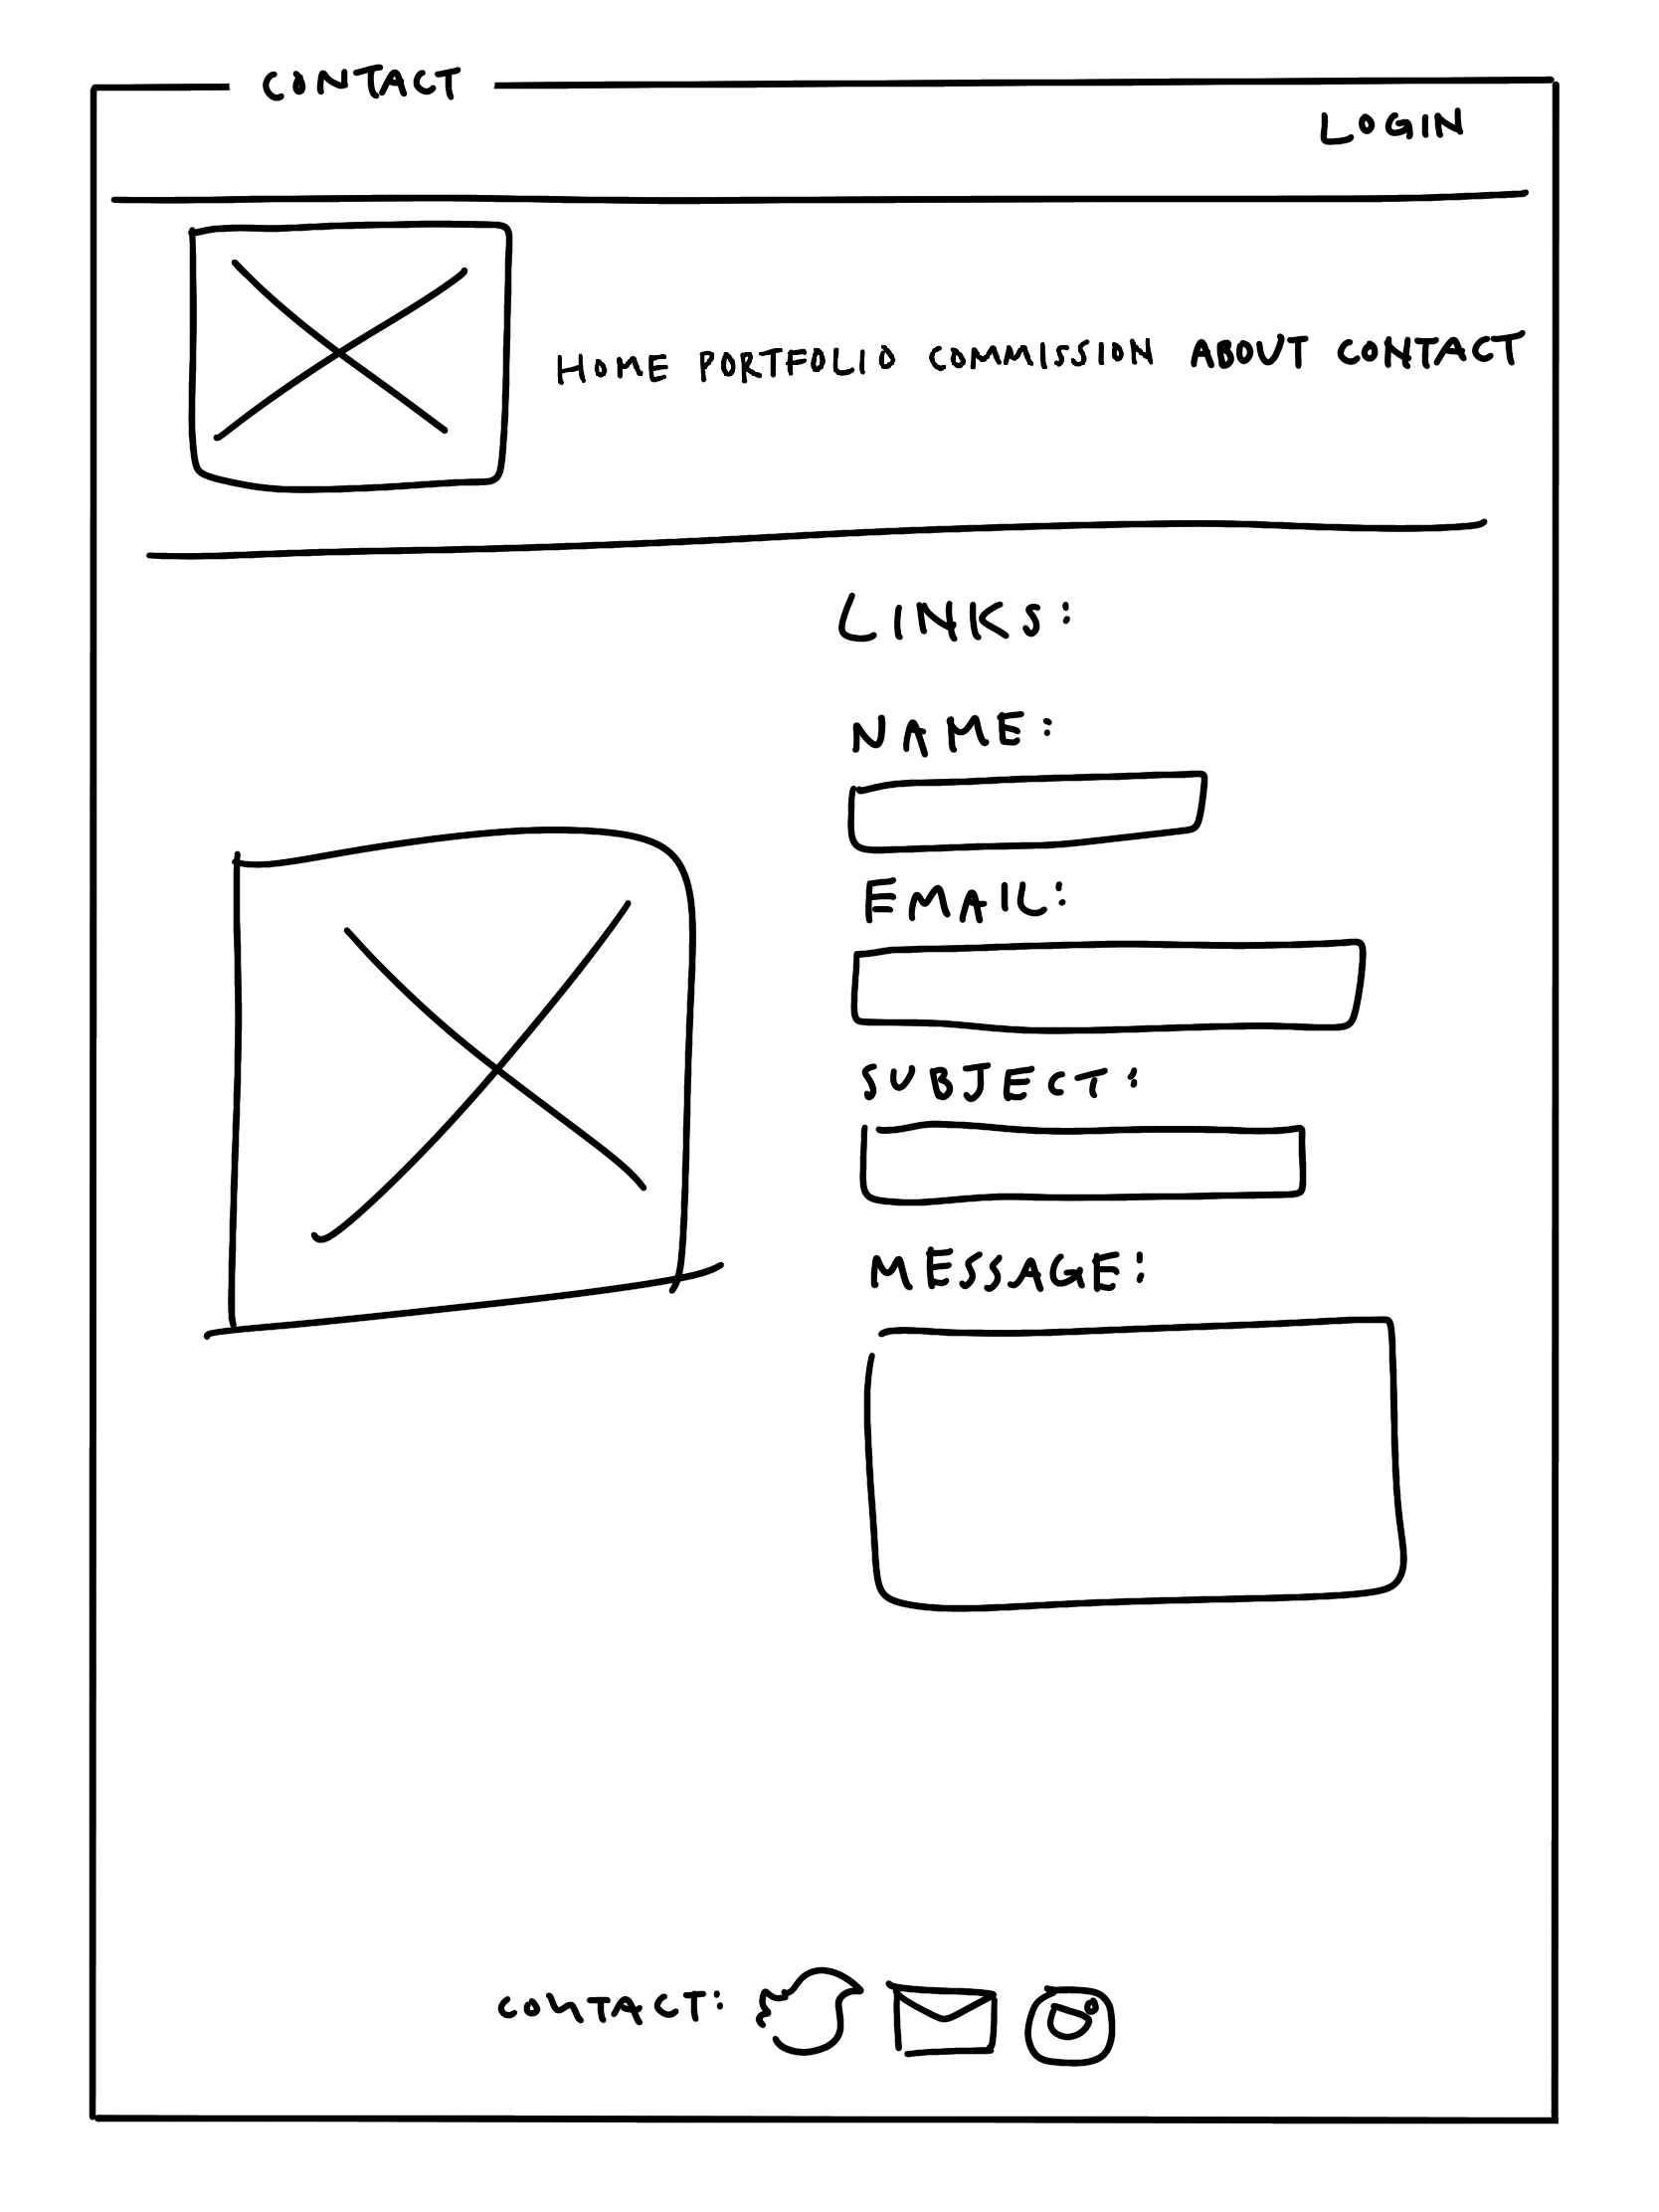 CONTACT
LOGIN
HOME PORTFOLIO COMMISSION ABOUT CONTACT
LINKS:
NAME:
EMAIL:
SUBJECT:
MESSAGE:
CONTACT: